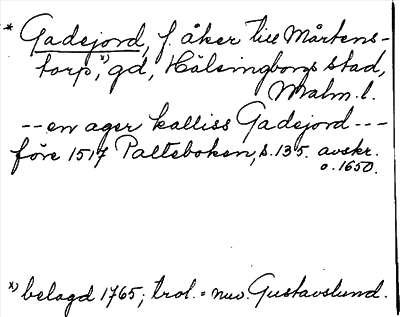 * Gadejord, f. åker till Mårtens-
torp,x) gd, Hälsingborgs stad,
Malm. l.
-- en ager kalliss Gadejord ---
före 1517 Palteboken, s. 135. avskr.
o. 1650.
x) belagd 1765; trol. = nuv. Gustavslund.